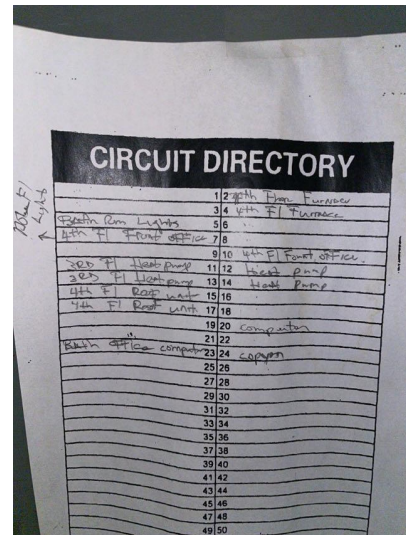 CIRCUIT DIRECTORY
1 2 4th Floor Furnace
3 4 4th Fl Furnace
Bath Rm Lights 5 6
4th Fl Front office 7 8
9 10 4th Fl Front office.
3RD Fl Heat pump 11 12 heat pump
3RD Fl Heat pump 13 14 Heat Pump
4th Fl Roof unit 15 16
4th Fl Roof unit 17 18
19 20 computer
21 22
office computer 23 24 copier
25 26
27 28
29 30
31 32
33 34
35 36
37 38
39 40
41 42
43 44
45 46
47 48
49 50
Fl
Lights